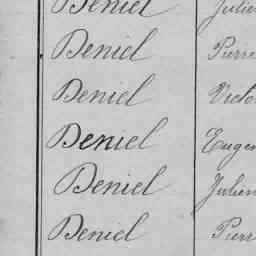 Deniel Julien
Deniel Pierre
Deniel Victo
Deniel Eugen
Deniel Julien
Deniel Pierr